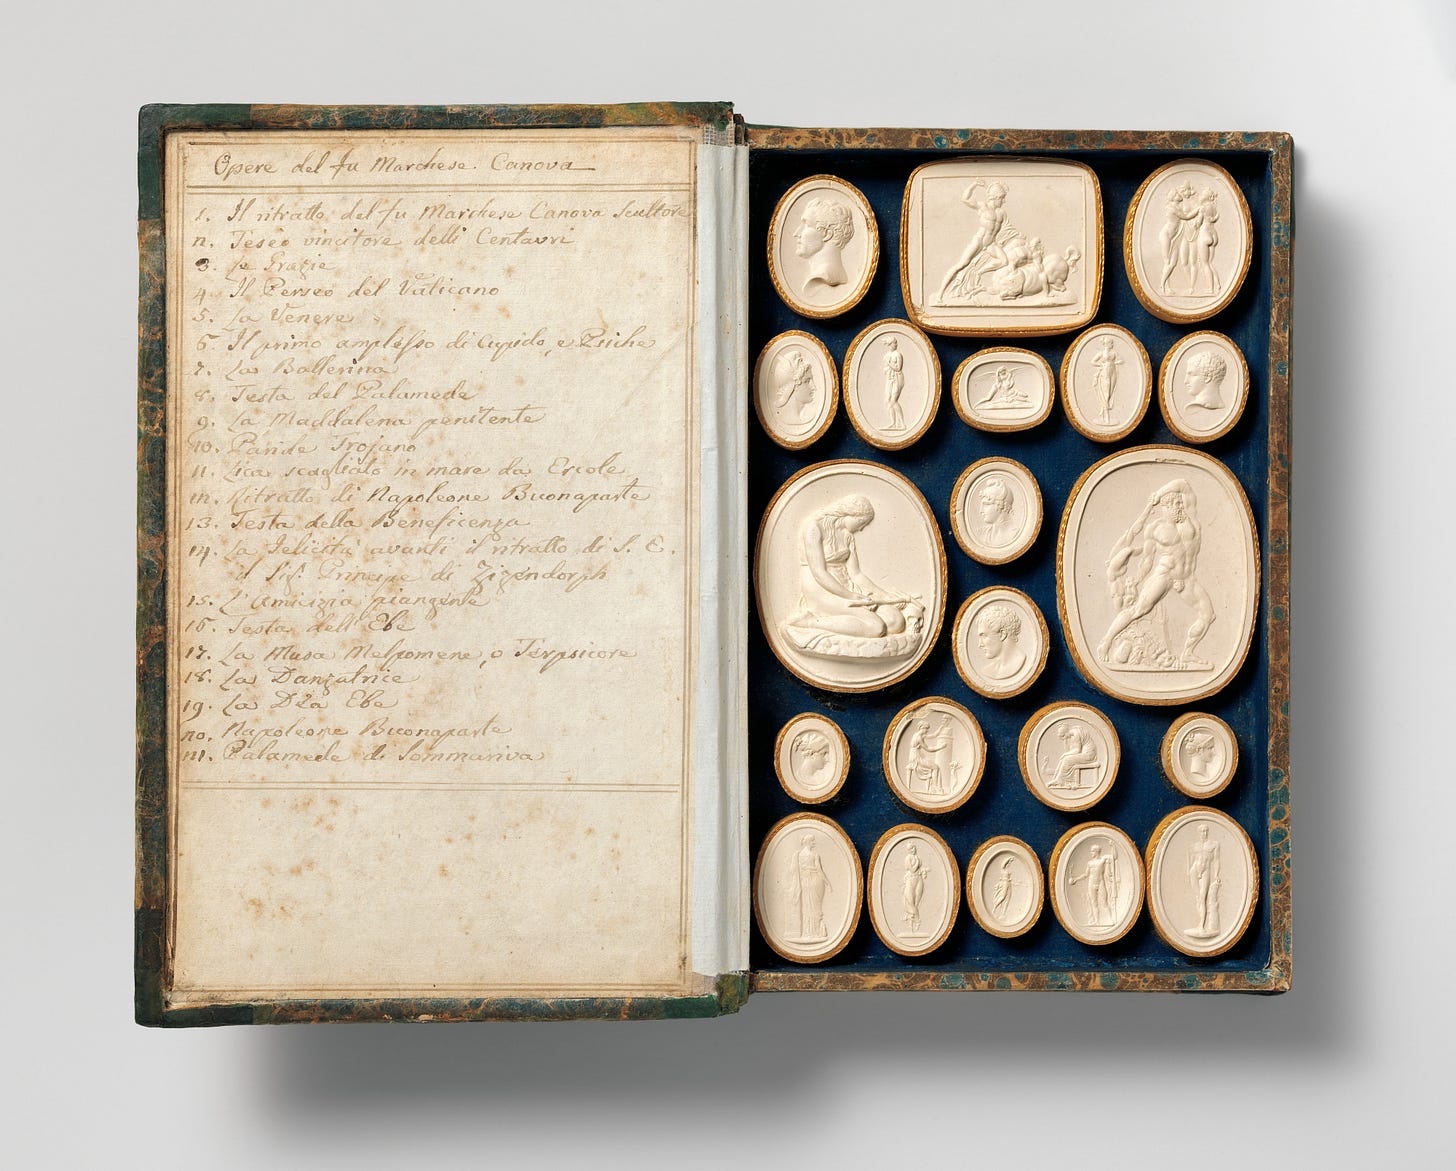 Opere del fu Marchese Canova
1. Il ritratto del fu Marchese Canova Scultore
n. Teseo vincitore delli Centauri
3. Le Grazie
4. Il Perseo del Vaticano
5. La Venere
6. Il primo amplesso di Cupido, e Psiche
7. La Ballerina
8. Testa del Palamede
9. La Maddalena penitente
10. Paride Trojano
11. Lica scagliato in mare da Ercole
1n. Ritratto di Napoleone Buonaparte
13. Testa della Beneficenza
14. La Felicità avanti il ritratto di S. E.
il Sig. Principe di Zizendorph
15. L'Amicizia piangente
16. Testa dell'Ebe
17. La Musa Melpomene, o Terpsicore
18. La Danzatrice
19. La Dea Ebe
n0. Napoleone Buonaparte
n1. Palamede di Sommariva